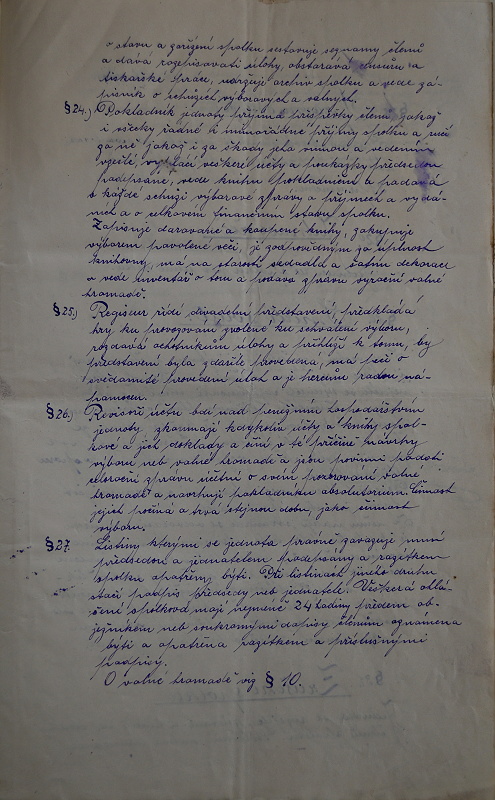 o stavu a zařízení spolku sestavuje seznamy členů
a dává rozepisovati úlohy, obstarává censuru a
tiskařské práce, udržuje archiv spolku a vede zá-
pisník o schůzích výborových a valných.
§ 24.) Pokladník jednoty přijímá příspěvky členů jakož
i všecky řádné a mimořádné příjmy spolku a ručí
za ně jakož i za škody jeho vinou a vedením
vzešlé, vyplácí veškeré účty a poukázky předsedou
podepsané, vede knihu pokladniční a podává
v každé schůzi výborové zprávy o příjmech a vydá-
ních a o celkovém finančním stavu spolku.
Zapisuje darované a koupené knihy, zakupuje
výborem povolené věci, je zodpovědným za úplnost
knihovny, má na starosti divadlo a šatnu dekorace
a vede inventář o tom a podává zprávu výroční valné
hromadě.
§ 25.) Regiseur řídí divadelní představení, předkládá
hry ku provozování zvolené ku schválení výboru,
rozdává ochotníkům úlohy a přihlíží k tomu, by
představení byla zdařile provedena, má péči o
svědomité provedení úloh a je hercům radou ná-
pomocen.
§ 26.) Revisoři účtů bdí nad peněžním hospodářstvím
jednoty zkoumají kdykoliv účty a knihy spol-
kové a jich doklady a činí v té příčině návrhy
výboru neb valné hromadě a jsou povinni podati
celoroční zprávu účetní o svém pozorování valné
hromadě a navrhují pokladníku absolutorium. Činnost
jejich počíná a trvá stejnou dobu, jako činnost
výboru.
§ 27. Listiny kterými se jednota právně zavazuje musí
předsedou a jednatelem podepsány a razítkem
spolku opatřeny býti. Při listinách jiného druhu
stačí podpis předsedy neb jednatele. Veškerá ohlá-
šení spolková mají nejméně 24 hodiny předem ob-
ježníkem neb soukromými dopisy členům oznámena
býti a opatřena razítkem a příslušnými
podpisy.
O valné hromadě viz § 10.